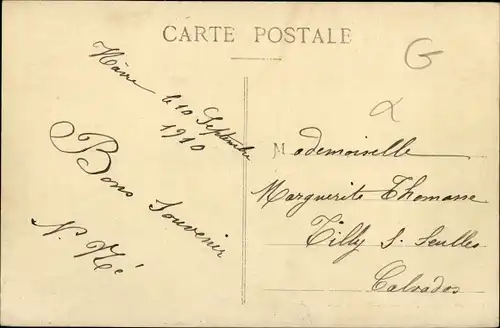 CARTE POSTALE
G
le 10 Septembre
1910
Bons Souvenir
N. Hé
Mademoiselle
Marguerite Thomasse
Tilly S. Seulles
Calvados